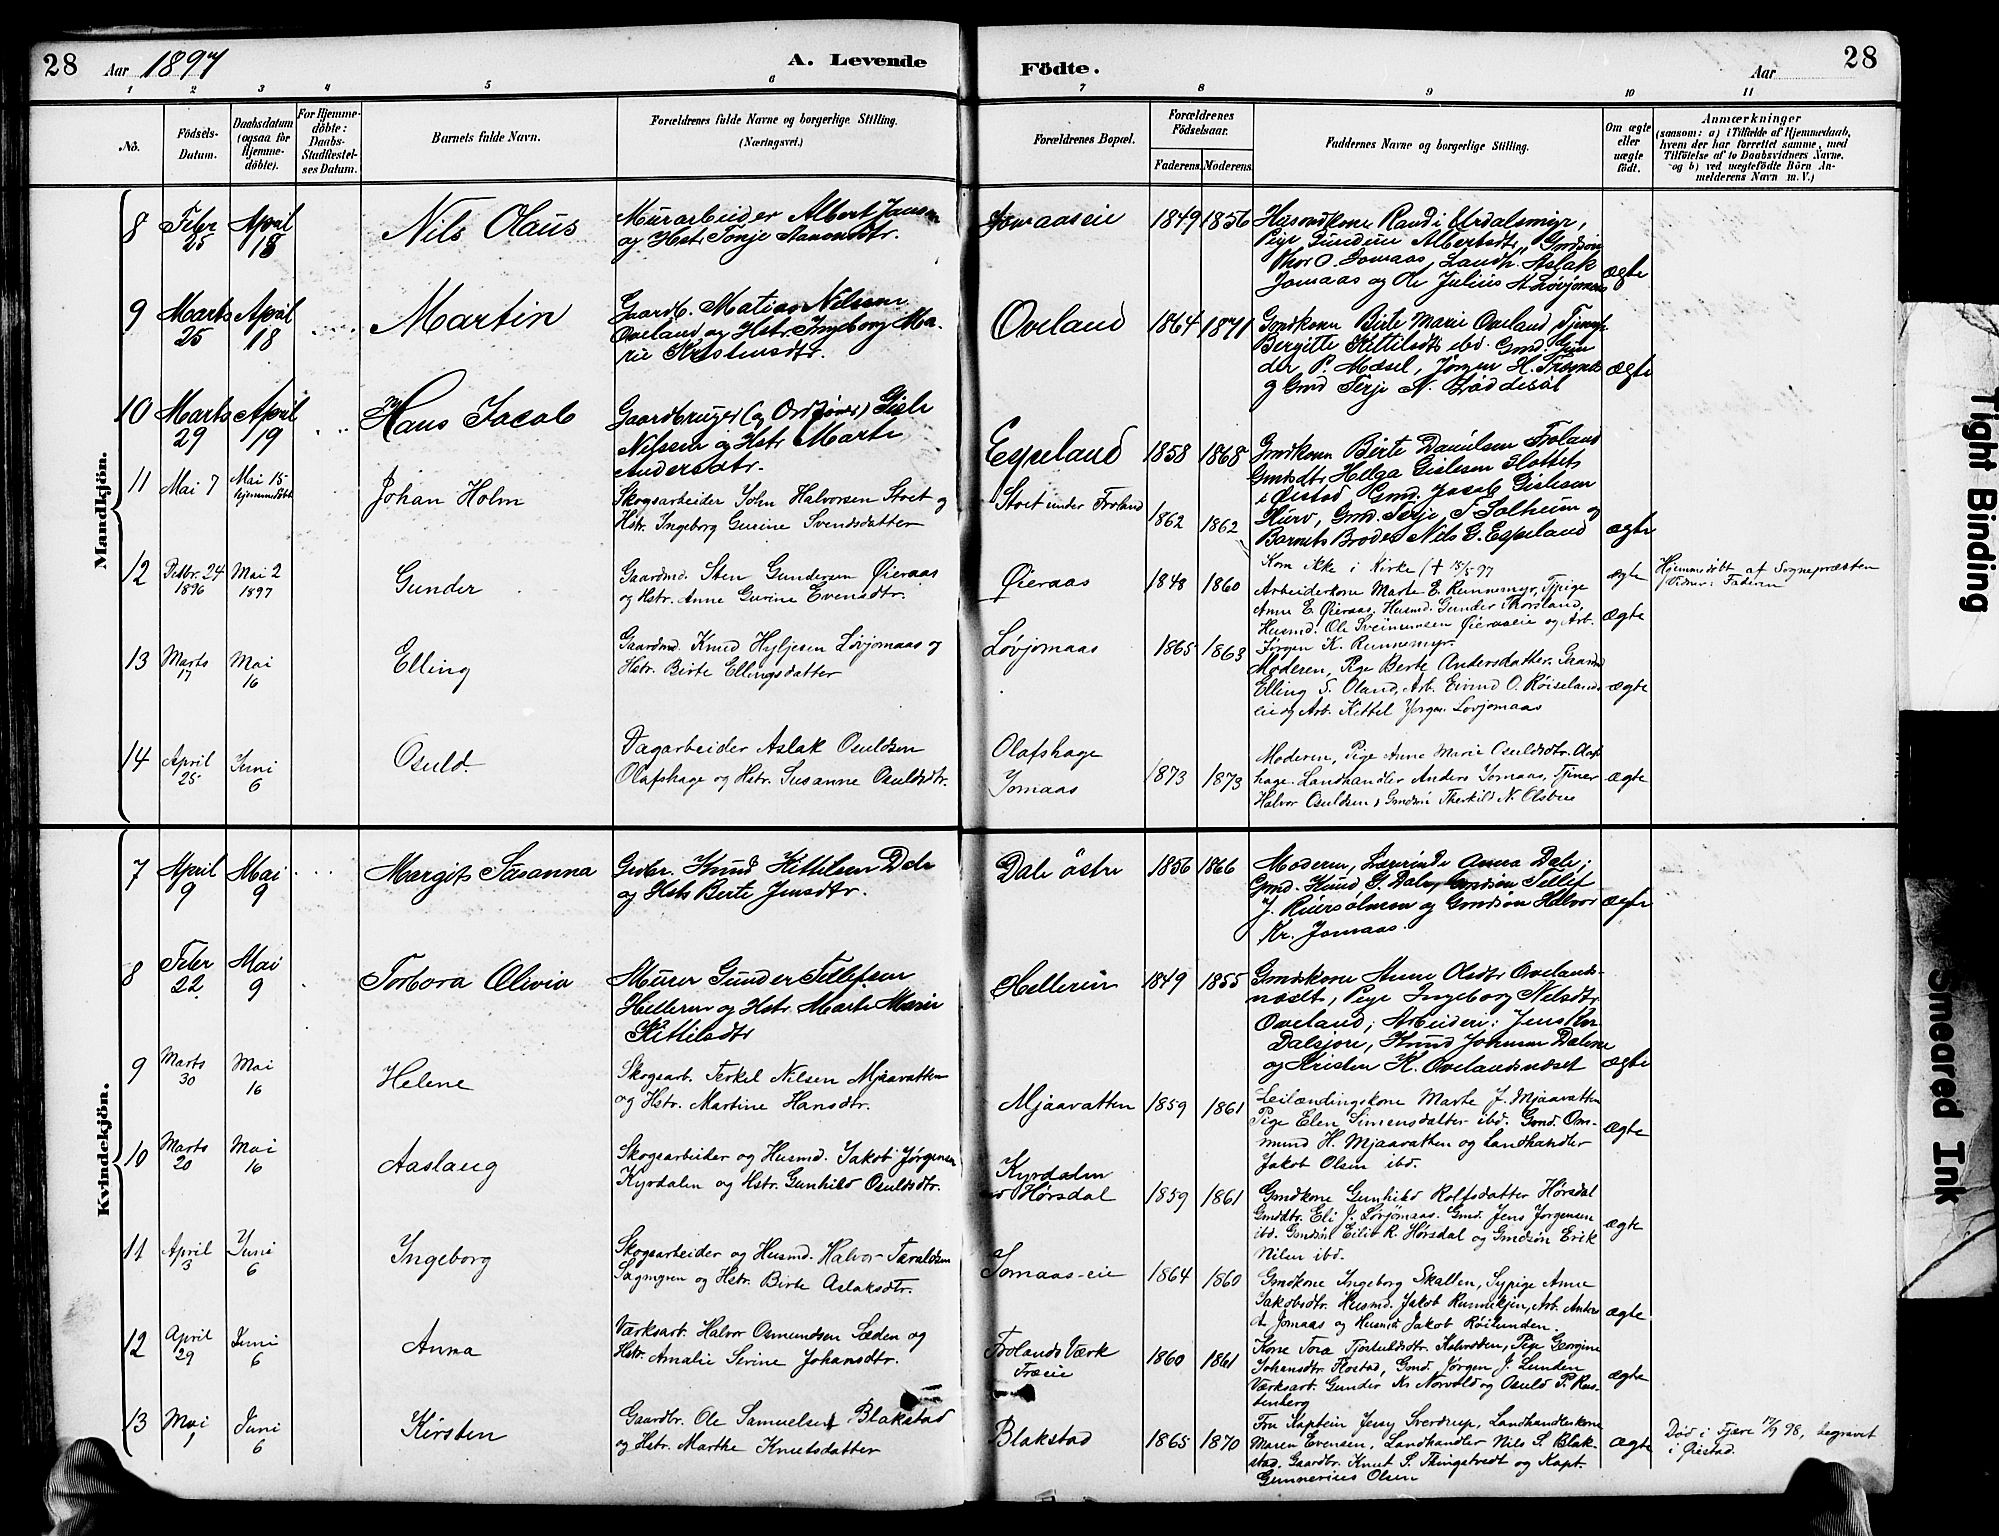 28 Aar 1897 A. Levende Födte. Aar 28
1 2 3 4 5 6 7 8 9 10 11
No.
Födsels-Datum.
Daabsdatum (ogsaa for Hjemme-döbte).
For Hjemme-döbte: Daabs-Stadfæstel-ses Datum.
Barnets fulde Navn.
Forældrenes fulde Navne og borgerlige Stilling. (Næringsvei.)
Forældrenes Bopæl.
Forældrenes Födselsaar.
Faderens. Moderens.
Faddernes Navne og borgerlige Stilling.
Om ægte eller uægte födt.
Anmærkninger
(saasom: a) i Tilfælde af Hjemmedaab,
hvem der har forrettet samme, med
Tilföielse af to Daabsvidners Navne.
og b) ved uægtefödte Börn An-
melderens Navn m. V.)
Mandkjön.
8 Febr 25 April 18 Nils Olaus
Murarbeider Albert Jans
og Hstr. Tonje Aanondtr.
Jomaaseie 1849 1856
Husmdkone Randi Urdalsmyr,
Pige Gundine Albertsdtr, Gmdsön
Thor O. Jomaas, Landh. Aslak
Jomaas og Ole Julius Løvjomaas
ægte
9 Marts 25 April 18 Martin
Gaardb. Matias Nilsen
Oveland og Hstr. Ingeborg Ma-
rie Kristensdtr.
Oveland 1864 1871
Gmdkone Birte Marie Oveland, Tjenp.
Bergitte Kittilsdtr ibd. Gmd. Gun
der P. Mosel, Jørgen H. Trænes
og Gmd Terje N. Bøddesöl
ægte
10 Marts 29 April 19 Hans Jacob
Gaardbruger (og Ordfører) Gisle
Nilssen og Hstr Marte
Andersdtr.
Espeland 1858 1868
Gmdkone Berte Danielsen Froland
Gmdsdtr Helga Gislesen Flottet
i Øistad, Gmd. Jacob Gislesen
Hurv, Gmd. Terje T. Solheim og
Barnets Broder Nils G. Espeland
ægte
11 Mai 7 Mai 15 Hjemmedöbt Johan Holm
Skogsarbeider John Halvorsen Stoet og
Hstr. Ingeborg Gurine Svendsdatter
Stoet under Froland 1862 1862
Kom ikke i Kirke († 18/5 97
ægte
Hjemmedöbt af Sognepræsten
Vidner: Faderen
12 Dcbr. 24 1896 Mai 2 1897 Gunder
Gaardmd. Sten Gundersen Øieraas
og Hstr. Anne Gurine Evensdtr.
Øieraas 1848 1860
Arbeiderkone Marte E. Runnemyr, Pige
Anne E. Øieraas, Husmd. Gunder Thorsland,
Husmd. Ole Sveinunsen Øieraseie og Arb.
Jørgen K. Runnemyr.
ægte
13 Marts 17 Mai 16 Elling
Gaardmd. Knud Hyljesen Løvjomaas og
Hstr. Birte Ellingsdatter
Løvjomaas 1865 1863
Moderen, Pige Berte Andersdatter, Gaardmd
Elling S. Oland, Arb. Eivind O. Røiseland
eie og Arb. Kittel Jørgen Løvjomaas
ægte
14 April 25 Juni 6 Osuld.
Dagarbeider Aslak Osuldsen
Olafshage og Hstr. Susanne Osuldsdtr.
Olafshage
Jomaas
1873 1873
Moderen, Pige Anne Marie Osuldsdtr. Olafs
hage. Landhandler Anders Jomaas, Tjener
Halvor Osuldsen, Gmdsön Therkild N. Olsbu
ægte
Kvindekjön.
7 April 9 Mai 9 Margit Susanna
Gmbr. Knud Kittelsen Dale
og Hstr Berte Jensdtr.
Dale östre 1856 1866
Moderen, Lærerinde Anna Dale;
Gmd. Knud G. Dale, Gmdsön Tellef
J. Reiersölmoen og Gmdsön Halvor
Kr. Jomaas.
ægte
8 Febr 22 Mai 9 Torbora Olivia
Murer Gunder Tellefsen
Helleren og Hstr. Marte Marie
Kittilsdtr
Helleren 1849 1855
Gmdkone Anne Olsdtr Ovelands-
næset, Pige Ingeborg Nilsdtr
Oveland; Arbeidere: Jens Kn.
Dalsjore, Knud Johnsen Dalene
og Kristen K. Ovelandsnæset
ægte
9 Marts 30 Mai 16 Helene
Skogsarb. Terkel Nilsen Mjaavatten
og Hstr. Martine Hansdtr.
Mjaavatten 1859 1861
Leilændingskone Marte J. Mjaavatten
Pige Elen Simensdatter ibd. Gmd. Om-
mund H. Mjaavatten og Landhandler
Jakob Olsen ibd.
ægte
10 Marts 20 Mai 16 Aaslaug
Skogsarbeider og Husmd. Jakob Jørgensen
Kyrdalen og Hstr. Gunhild Osuldsdtr.
Kyrdalen
Hørsdal 1859 1861
Gmdkone Gunhild Rolfsdatter Hørsdal
Gmddtr. Eli J. Løvjomaas. Gmd. Jens Jørgensen
ibd. Gmdsön Eiliv R. Hørsdal og Gmdsön Erik
Nilsen ibd.
ægte
11 April 3 Juni 6 Ingeborg
Skogsarbeider og Husmd. Halvor Taraldsen
Sagmyren og Hstr. Birte Aslaksdtr.
Jomaas-eie 1864 1860
Gmdkone Ingeborg Skallen, Sypige Anne
Jakobsdtr. Husmd. Jakob Runnekjen, Arb. Anders
A. Jomaas og Husmd Jakob Röilunden.
ægte
12 April 29 Juni 6 Anna
Værksarb. Halvor Osmundsen Læden og
Hstr. Amalie Serine Johansdtr.
Frolands Værk
Træeie
1860 1861
Kone Tora Tjostulsdtr. Kalvodden, Pige Georgine
Johansdtr. Flostad, Gmd. Jørgen J. Lunden
Værksarb. Gunder Kr Norvold og Osuld P. Rus-
tenberg
ægte
13 Mai 1 Juni 6 Kirsten
Gaardbr. Ole Samuelsen Blakstad
og Hstr. Marthe Knutsdatter
Blakstad 1865 1870
Fru Kaptein Jessy Sverdrup, Landhandlerkone
Maren Evensen, Landhandler Nils S. Blak-
stad, Gaardbr. Knut S. Tingstvedt og Kapt.
Gunnerius Olsen
ægte
Død i Fjære 17/9 98, begravet
i Øistad.
Tight Binding
Smeared Ink